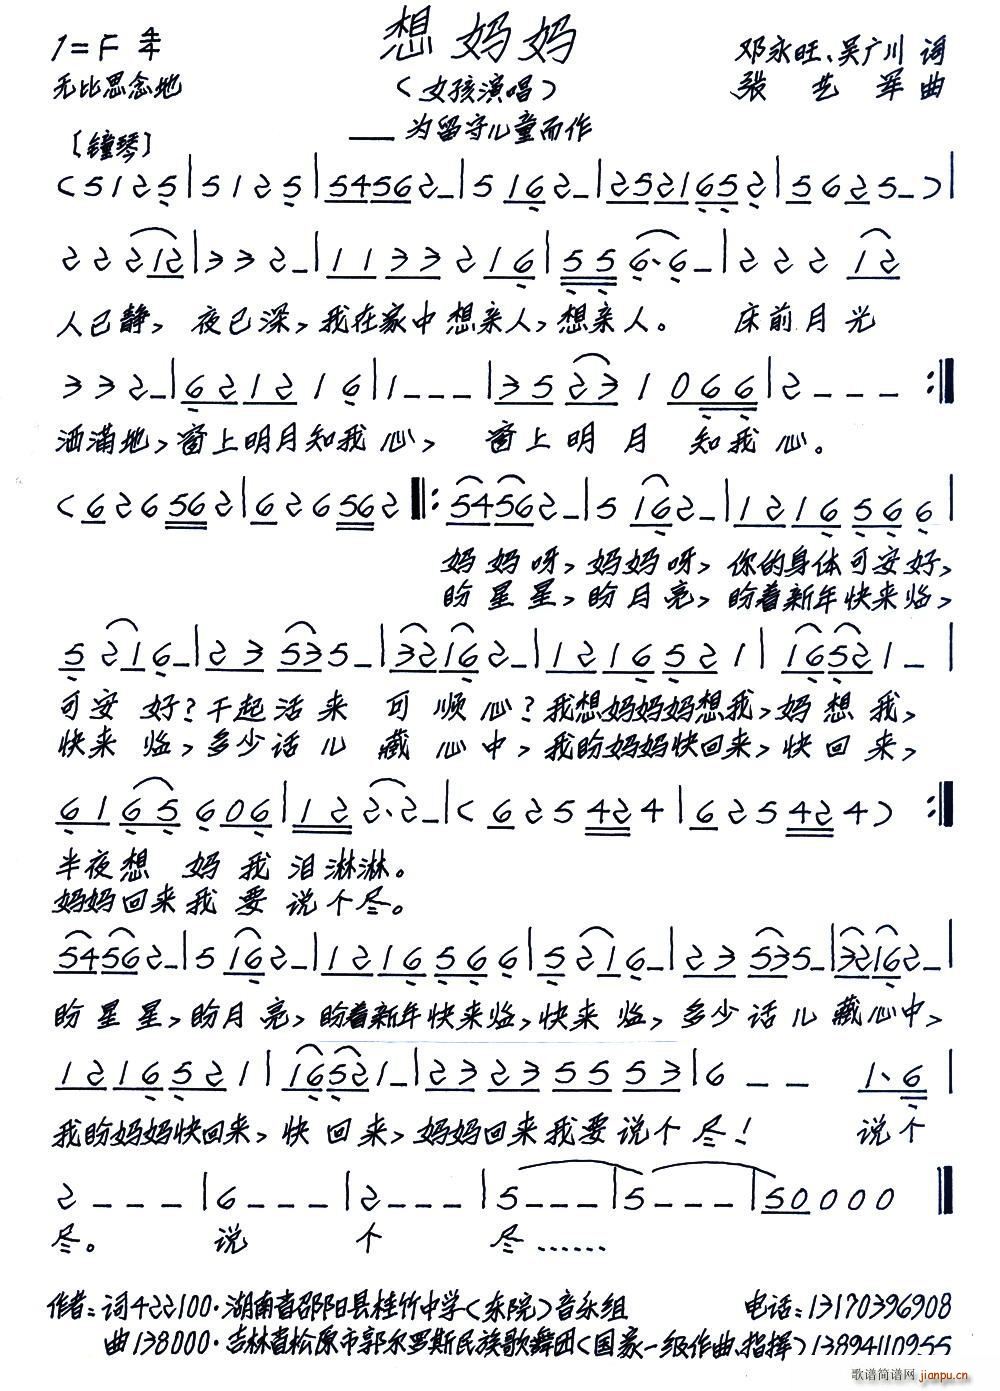 想妈妈
1=F 4/4
邓永旺、吴广川 词
无比思念地
(女孩演唱)
张艺军 曲
——为留守儿童而作
[钟琴]
(5 1 2 5|5 1 2 5|54562-|5 162-|2521652|5 6 2 5-)|
2 2 212|3 3 2-|1133216|55 6·6-|2 2 2 12
人已静,夜已深,我在家中想亲人,想亲人。 床前月光
3 3 2-|621216|1---|3523 1 066|2---:‖
洒满地,窗上明月知我心, 窗上明月 知我心。
(626562|626562‖:54562-|5 162-|1216566|
妈妈呀,妈妈呀,你的身体可安好,
盼星星,盼月亮,盼着新年快来临,
5 216-|23535-|32162-|1216521|16521-|
可安 好?干起活来 可 顺心?我想妈妈妈想我,妈想我,
快来 临,多少话儿 藏 心中,我盼妈妈快回来,快回来,
6165 606|122·2-|(625424|625424):‖
半夜想 妈我泪淋淋。
妈妈回来我要说个尽。
54562-|5 162-|1216566|5216-|23535-|32162-|
盼星星,盼月亮,盼着新年快来临,快来临,多少话儿藏心中,
1216521|16521-|23235553|6 -- 1·6|
我盼妈妈快回来,快回来,妈妈回来我要说个尽! 说个
2---|6---|2---|5---|5---|50000‖
尽。 说 个 尽……
作者:词422100·湖南省邵阳县桂竹中学(东院)音乐组 电话:13170396908
曲138000·吉林省松原市郭尔罗斯民族歌舞团(国家一级作曲、指挥)13894110955
歌谱简谱网 jianpu.cn